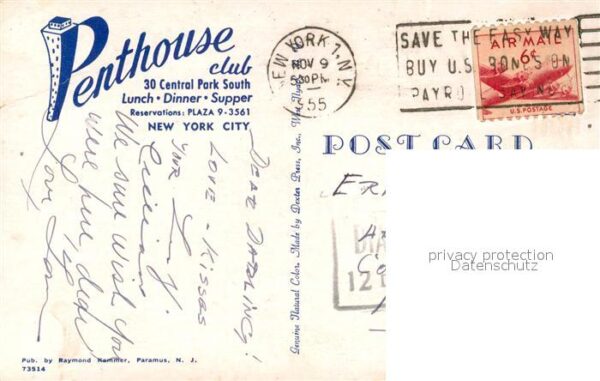 Penthouse
club
30 Central Park South
Lunch • Dinner • Supper
Reservations: PLAZA 9-3561
NEW YORK CITY
NEW YORK 1, N.Y.
NOV 9
PM
1955
SAVE THE EASY WAY
BUY U.S. BONDS ON
PAYROLL SAVINGS
AIR MAIL
6¢
U.S. POSTAGE
POST CARD
DEAR DARLING!
LOVE - KISSES
YOUR
We sure wish you
were here, dude
Love
Genuine Natural Color. Made by Dexter Press, Inc., West Nyack
12
privacy protection
Datenschutz
Pub. by Raymond Kemmer, Paramus, N. J.
73514